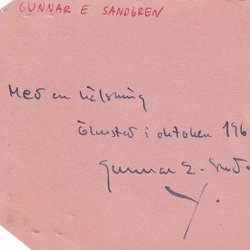 GUNNAR E SANDGREN
Med en hälsning
Ölmstad i oktober 196
Gunnar E. Sand